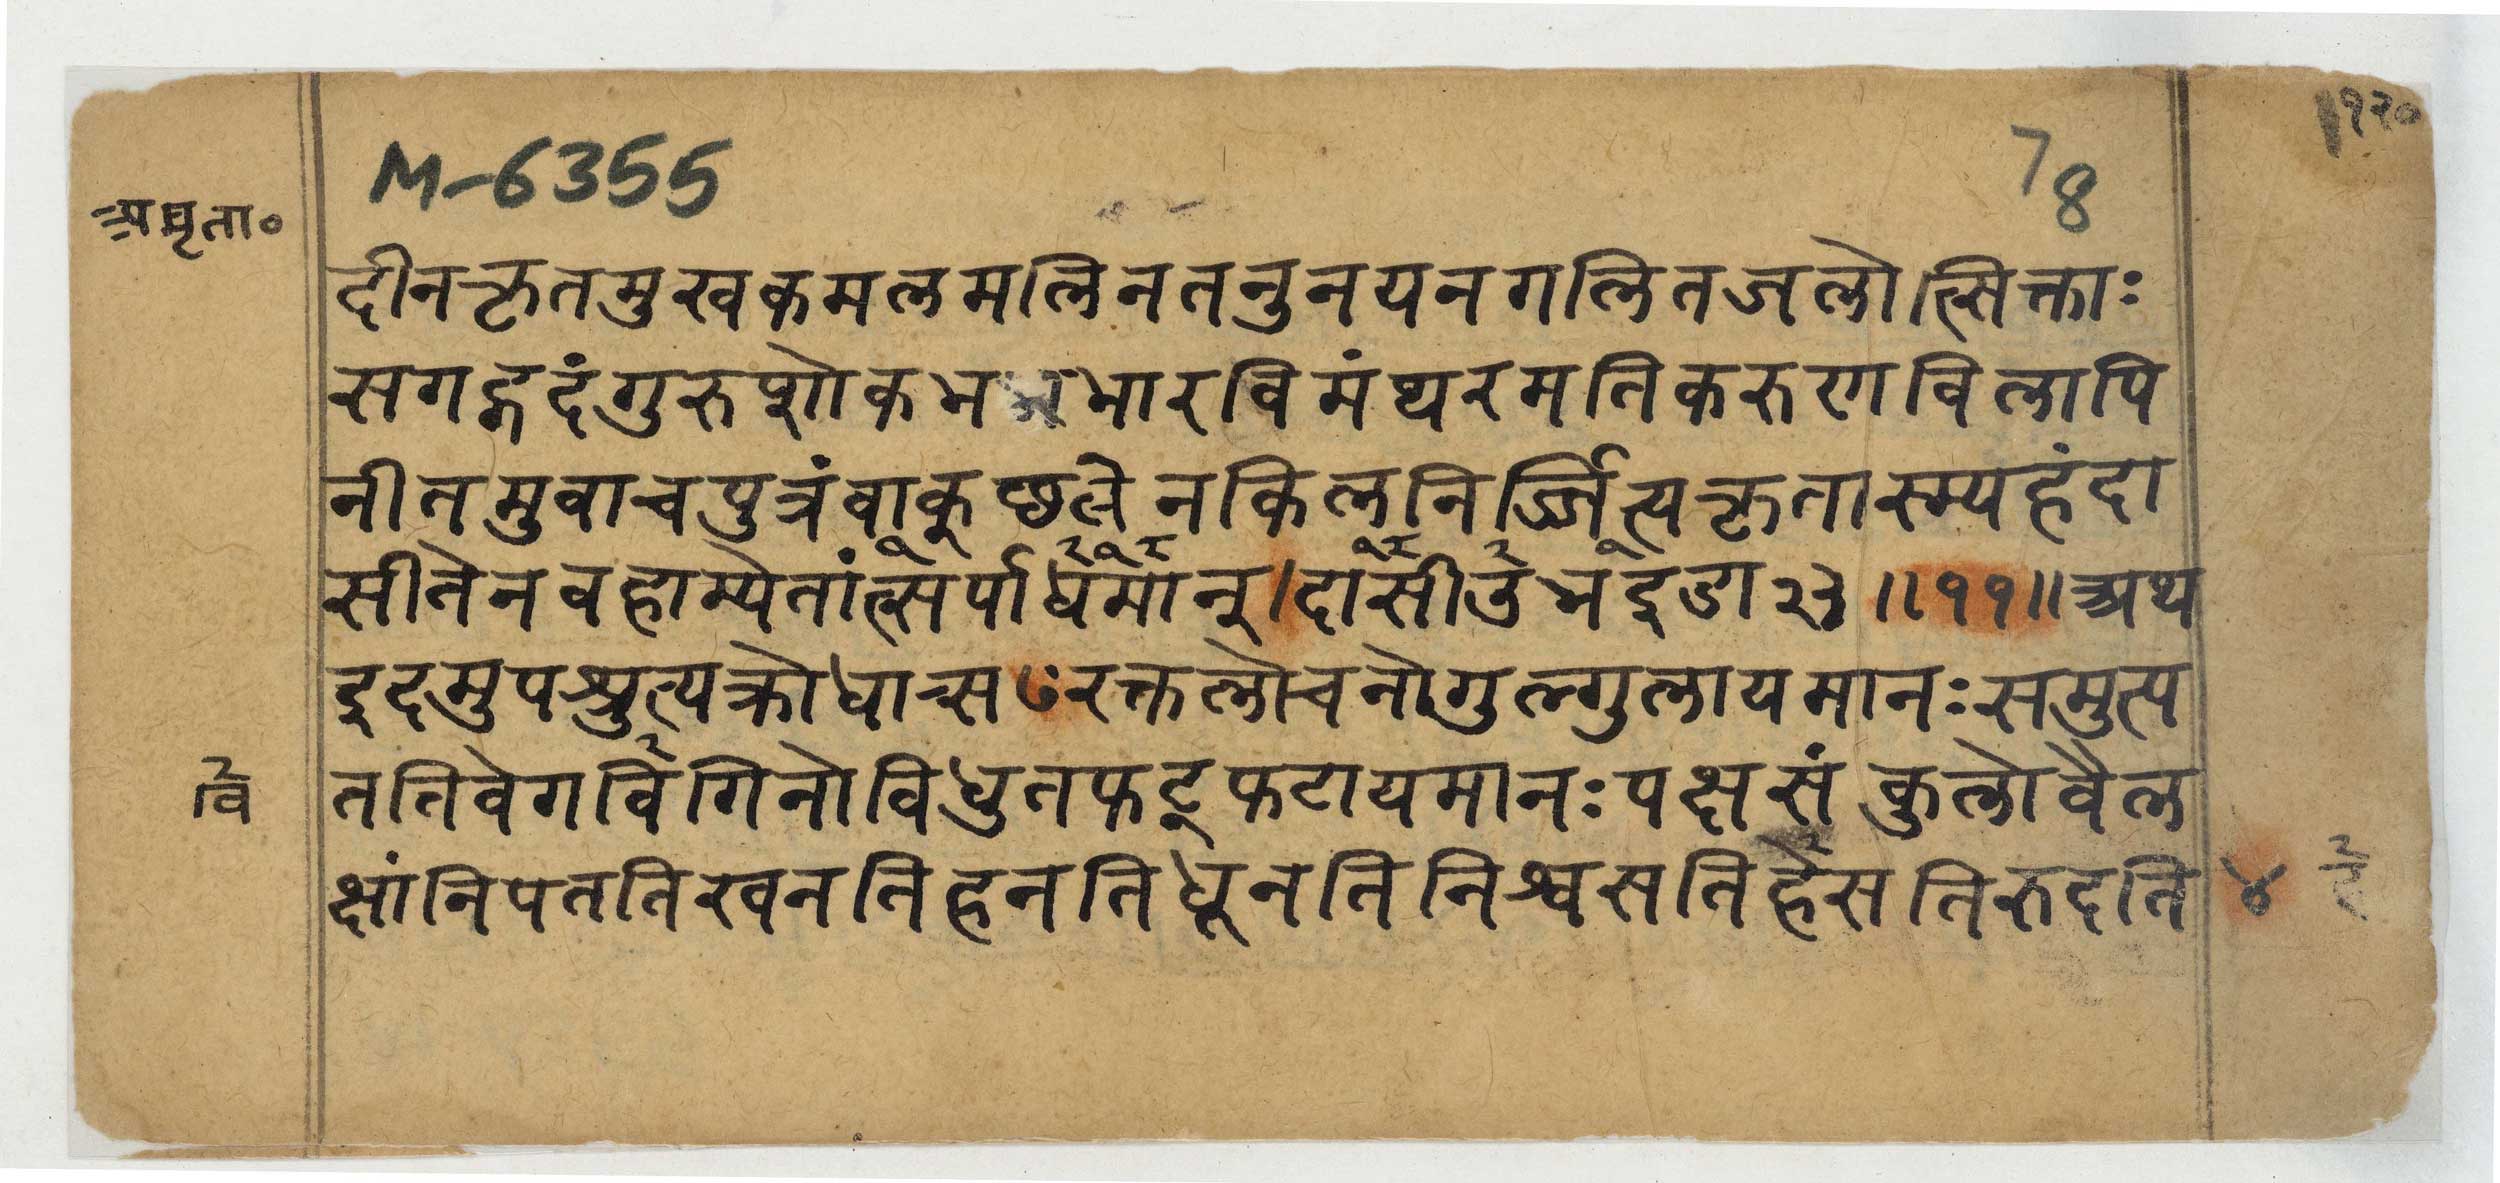 १२०
M-6355
7
8
अमृता०
दीनकृतमुखकमलमलिनतनुनयनगलितजलोत्सिक्ताः
सगद्गदंगुरुशोकभ भारविमंथरमतिकरुणविलापि
नीतमुवाचपुत्रंवाक्छलेनकिलनिर्ज्जित्यकृतास्म्यहंदा
सीतेनवहाम्येतांत्सर्पाधमान्।दासीउभइडा२३॥११॥अथ
इदमुपश्रुत्यक्रोधात्स७रक्तलोचनोगुल्गुलायमानःसमुत्प
ततिवेगविगिनोविधुतफट्फटायमानःपक्षसंकुलोवैल
वि
क्षांनिपततिखनतिहनतिधूनतिनिश्वसतिहसतिरुदति
४